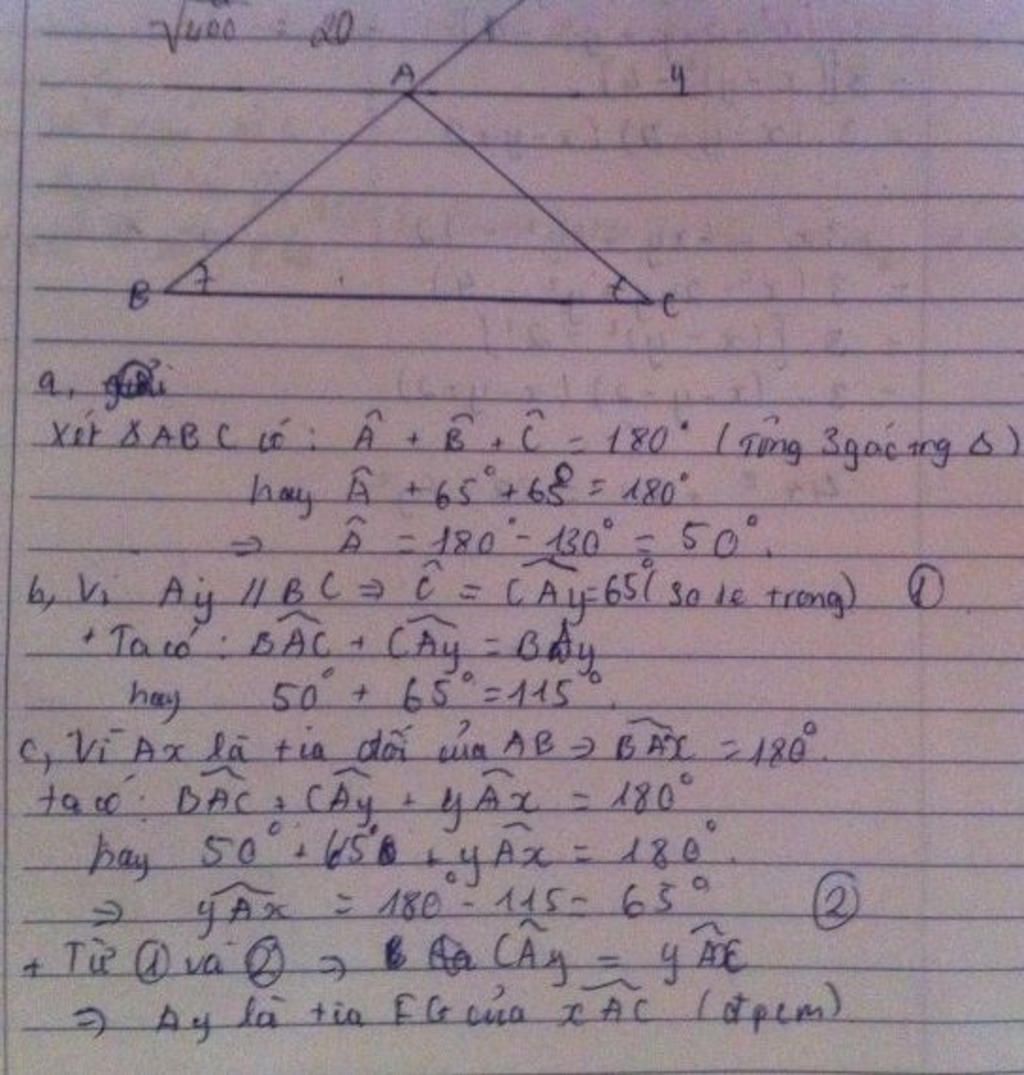 √400 = 20
A
y
B
C
a, giải
Xét ΔABC có: Â + B̂ + Ĉ = 180° (Tổng 3 góc trg Δ)
hay Â + 65° + 65° = 180°
⇒ Â = 180° - 130° = 50°.
b, Vì Ay // BC ⇒ Ĉ = CÂy = 65° (so le trong) ①
+ Ta có: BÂC + CÂy = BÂy
hay 50° + 65° = 115°.
c, Vì Ax là tia đối của AB ⇒ BÂx = 180°.
ta có: BÂC + CÂy + yÂx = 180°
hay 50° + 65° + yÂx = 180°.
⇒ yÂx = 180° - 115 = 65° ②
+ Từ ① và ② ⇒ CÂy = yÂx
⇒ Ay là tia FG của xÂC (đpcm)